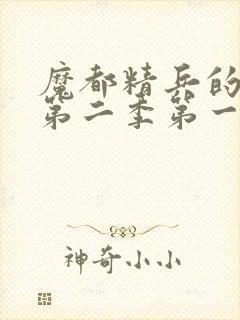 魔都精兵的
第二季第一
神奇小小